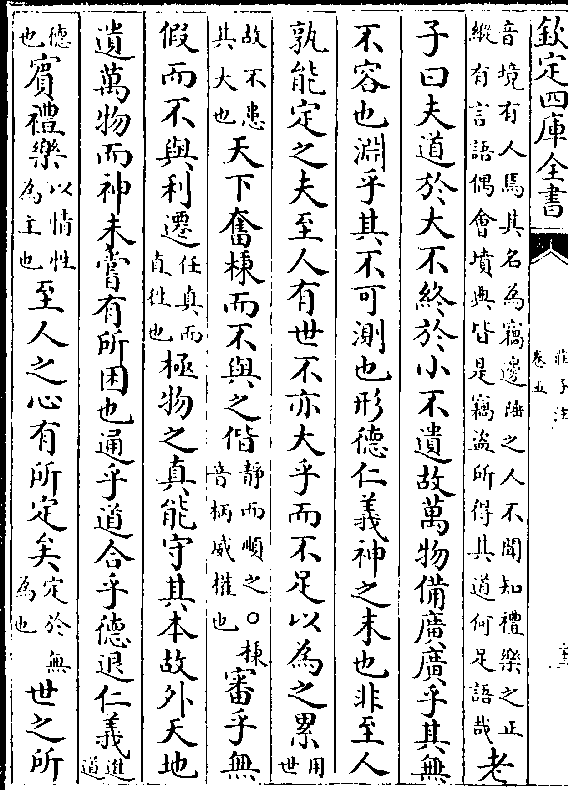 欽定四庫全書
莊子注
卷五
音境有人焉其名為竊邊陲之人不聞知禮樂之正縱有言語偶會墳典皆是竊盜所得其道何足語哉老
子曰夫道於大不終於小不遺故萬物備廣廣乎其無
不容也淵乎其不可測也形德仁義神之末也非至人
孰能定之夫至人有世不亦大乎而不足以為之累用世
故不患其大也天下奮棅而不與之偕靜而順之○棅音柄威權也審乎無
假而不與利遷任真而直往也極物之真能守其本故外天地
遺萬物而神未嘗有所困也通乎道合乎德退仁義進道
德也賓禮樂以情性為主也至人之心有所定矣定於無為也世之所